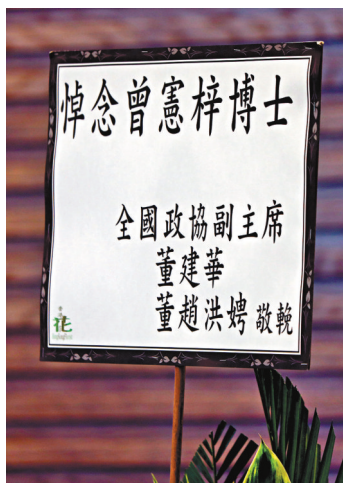 悼念曾憲梓博士
全國政協副主席
董建華
董趙洪娉 敬輓
花